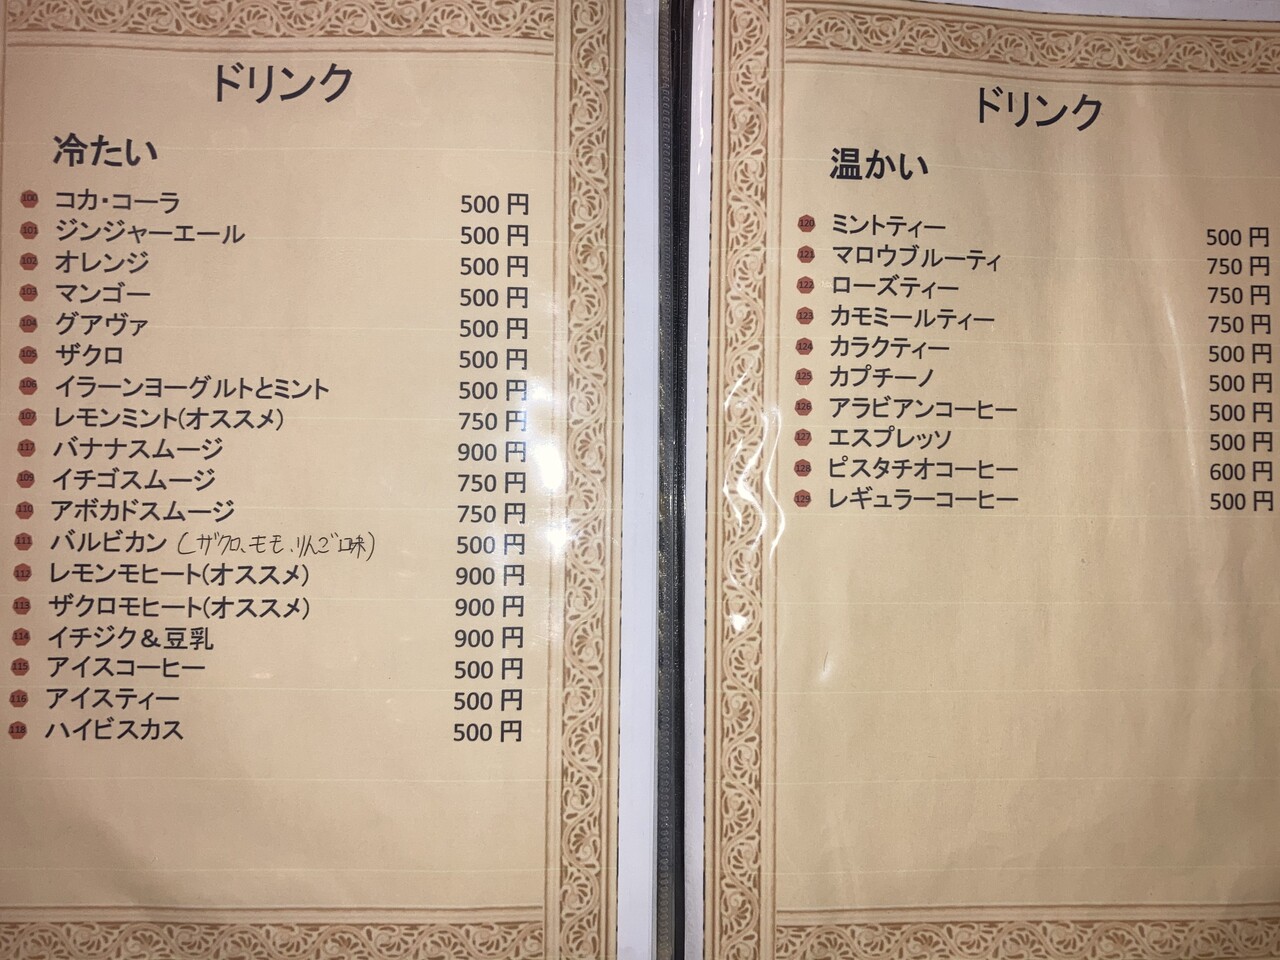 ドリンク
冷たい
100 コカ・コーラ 500 円
101 ジンジャーエール 500 円
102 オレンジ 500 円
103 マンゴー 500 円
104 グアヴァ 500 円
105 ザクロ 500 円
106 イラーンヨーグルトとミント 500 円
107 レモンミント(オススメ) 750 円
117 バナナスムージ 900 円
109 イチゴスムージ 750 円
110 アボカドスムージ 750 円
111 バルビカン (ザクロ、モモ、りんご味) 500 円
112 レモンモヒート(オススメ) 900 円
113 ザクロモヒート(オススメ) 900 円
114 イチジク＆豆乳 900 円
115 アイスコーヒー 500 円
116 アイスティー 500 円
118 ハイビスカス 500 円
ドリンク
温かい
120 ミントティー 500 円
121 マロウブルーティ 750 円
122 ローズティー 750 円
123 カモミールティー 750 円
124 カラクティー 500 円
125 カプチーノ 500 円
126 アラビアンコーヒー 500 円
127 エスプレッソ 500 円
128 ピスタチオコーヒー 600 円
129 レギュラーコーヒー 500 円